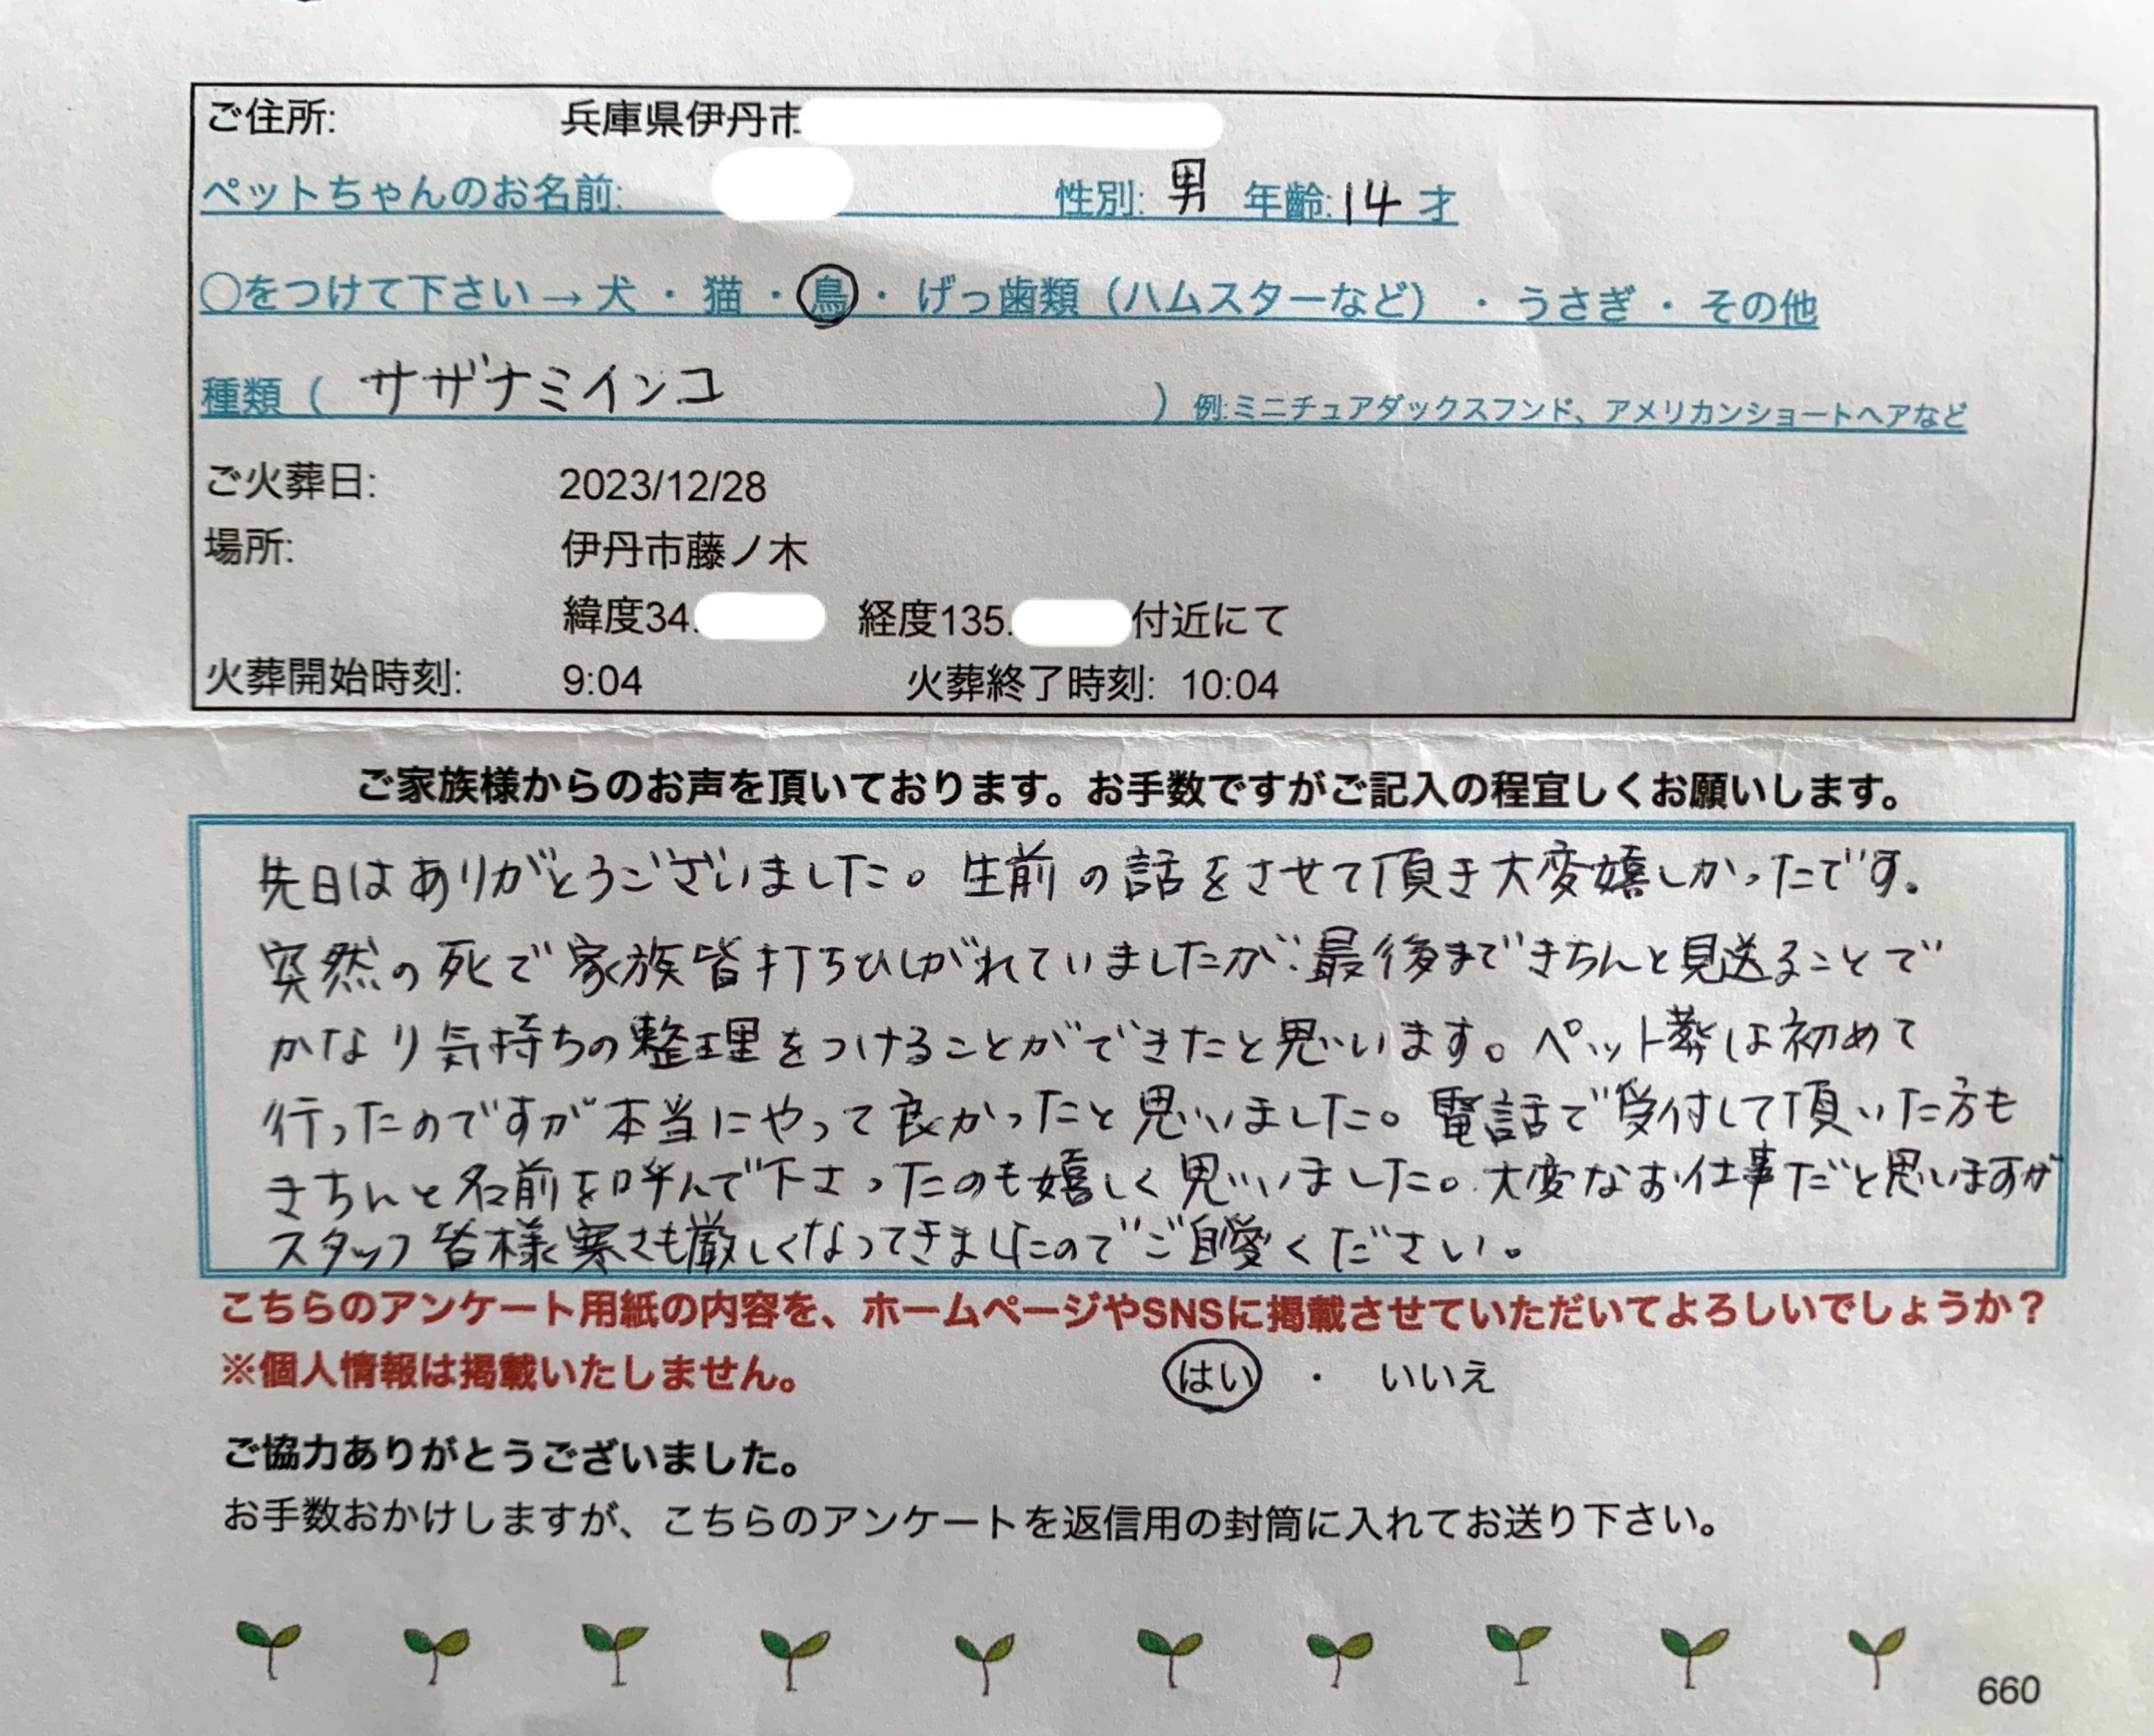 ご住所: 兵庫県伊丹市
ペットちゃんのお名前: 性別: 男 年齢: 14 才
○をつけて下さい→ 犬 ・ 猫 ・ 鳥 ・ げっ歯類（ハムスターなど） ・ うさぎ ・ その他
種類（ サザナミインコ ）例:ミニチュアダックスフンド、アメリカンショートヘアなど
ご火葬日: 2023/12/28
場所: 伊丹市藤ノ木
緯度34. 経度135. 付近にて
火葬開始時刻: 9:04 火葬終了時刻: 10:04
ご家族様からのお声を頂いております。お手数ですがご記入の程宜しくお願いします。
先日はありがとうございました。生前の話をさせて頂き大変嬉しかったです。
突然の死で家族皆打ちひしがれていましたが、最後まできちんと見送ることで
かなり気持ちの整理をつけることができたと思います。ペット葬は初めて
行ったのですが本当にやって良かったと思いました。電話で受付して頂いた方も
きちんと名前を呼んで下さったのも嬉しく思いました。大変なお仕事だと思いますが
スタッフ皆様寒さも厳しくなってきましたのでご自愛ください。
こちらのアンケート用紙の内容を、ホームページやSNSに掲載させていただいてよろしいでしょうか？
※個人情報は掲載いたしません。 はい ・ いいえ
ご協力ありがとうございました。
お手数おかけしますが、こちらのアンケートを返信用の封筒に入れてお送り下さい。
660